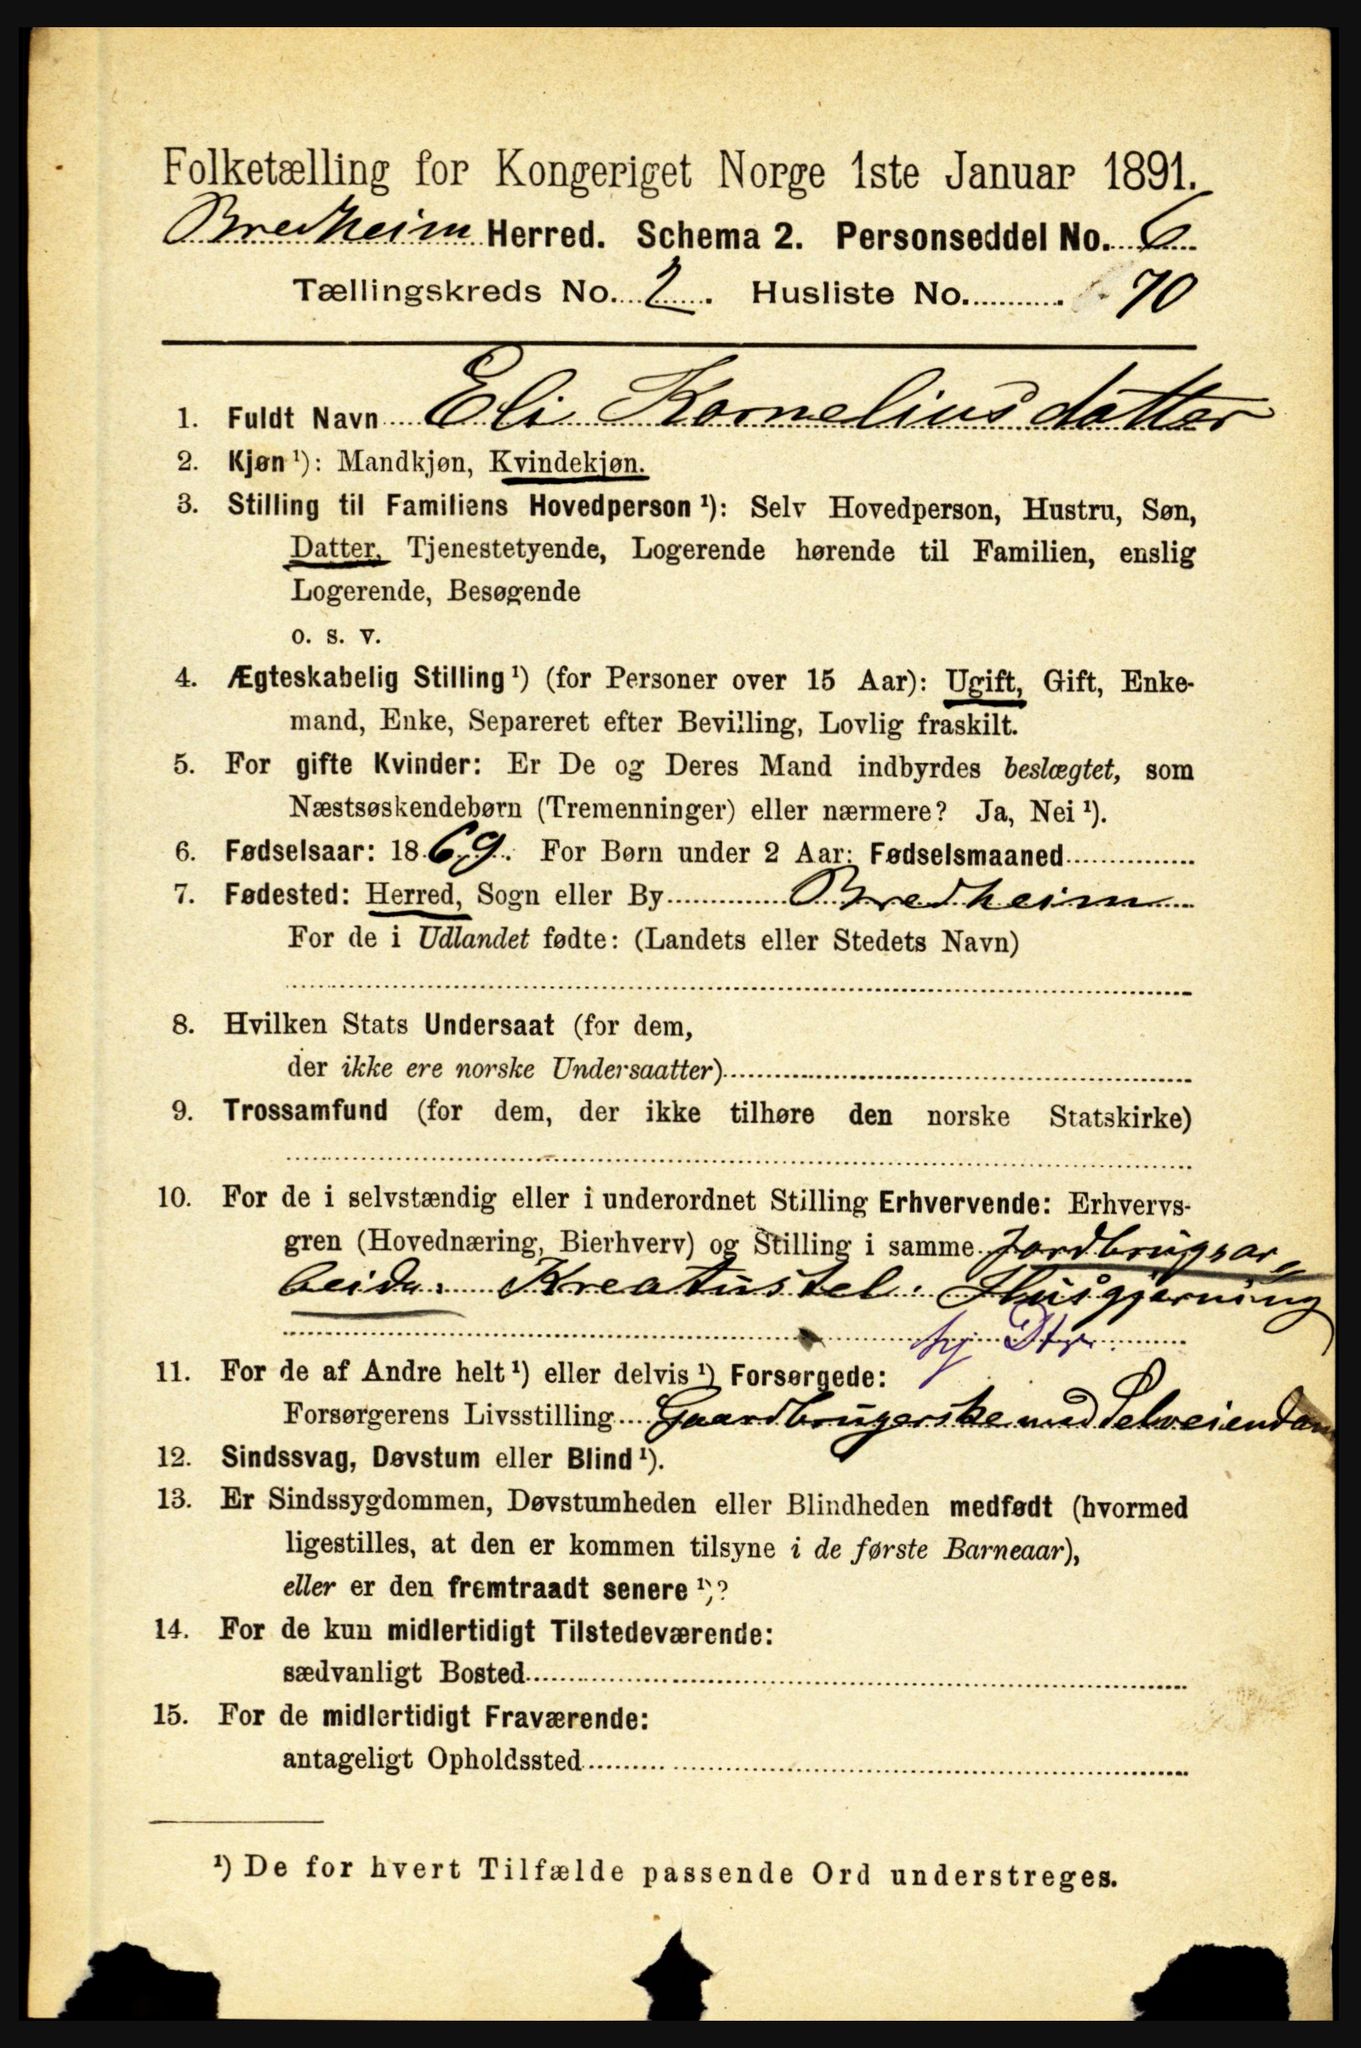 Folketælling for Kongeriget Norge 1ste Januar 1891.
Bredheim Herred. Schema 2. Personseddel No. 6
Tællingskreds No. 2. Husliste No. 70
1. Fuldt Navn Eli Kornelius datter
2. Kjøn ¹): Mandkjøn, Kvindekjøn.
3. Stilling til Familiens Hovedperson ¹): Selv Hovedperson, Hustru, Søn,
Datter, Tjenestetyende, Logerende hørende til Familien, enslig
Logerende, Besøgende
o. s. v.
4. Ægteskabelig Stilling ¹) (for Personer over 15 Aar): Ugift, Gift, Enke-
mand, Enke, Separeret efter Bevilling, Lovlig fraskilt.
5. For gifte Kvinder: Er De og Deres Mand indbyrdes beslægtet, som
Næstsøskendebørn (Tremenninger) eller nærmere? Ja, Nei ¹).
6. Fødselsaar: 1869. For Børn under 2 Aar: Fødselsmaaned
7. Fødested: Herred, Sogn eller By Bredheim
For de i Udlandet fødte: (Landets eller Stedets Navn)
8. Hvilken Stats Undersaat (for dem,
der ikke ere norske Undersaatter)
9. Trossamfund (for dem, der ikke tilhøre den norske Statskirke)
10. For de i selvstændig eller i underordnet Stilling Erhvervende: Erhvervs-
gren (Hovednæring, Bierhverv) og Stilling i samme Jordbrugsar-
beide. Kreaturstel. Husgjerning
hj. Dtr.
11. For de af Andre helt ¹) eller delvis ¹) Forsørgede:
Forsørgerens Livsstilling Gaardbrugerske med Selveiendom
12. Sindssvag, Døvstum eller Blind ¹).
13. Er Sindssygdommen, Døvstumheden eller Blindheden medfødt (hvormed
ligestilles, at den er kommen tilsyne i de første Barneaar),
eller er den fremtraadt senere ¹)?
14. For de kun midlertidigt Tilstedeværende:
sædvanligt Bosted
15. For de midlertidigt Fraværende:
antageligt Opholdssted
¹) De for hvert Tilfælde passende Ord understreges.